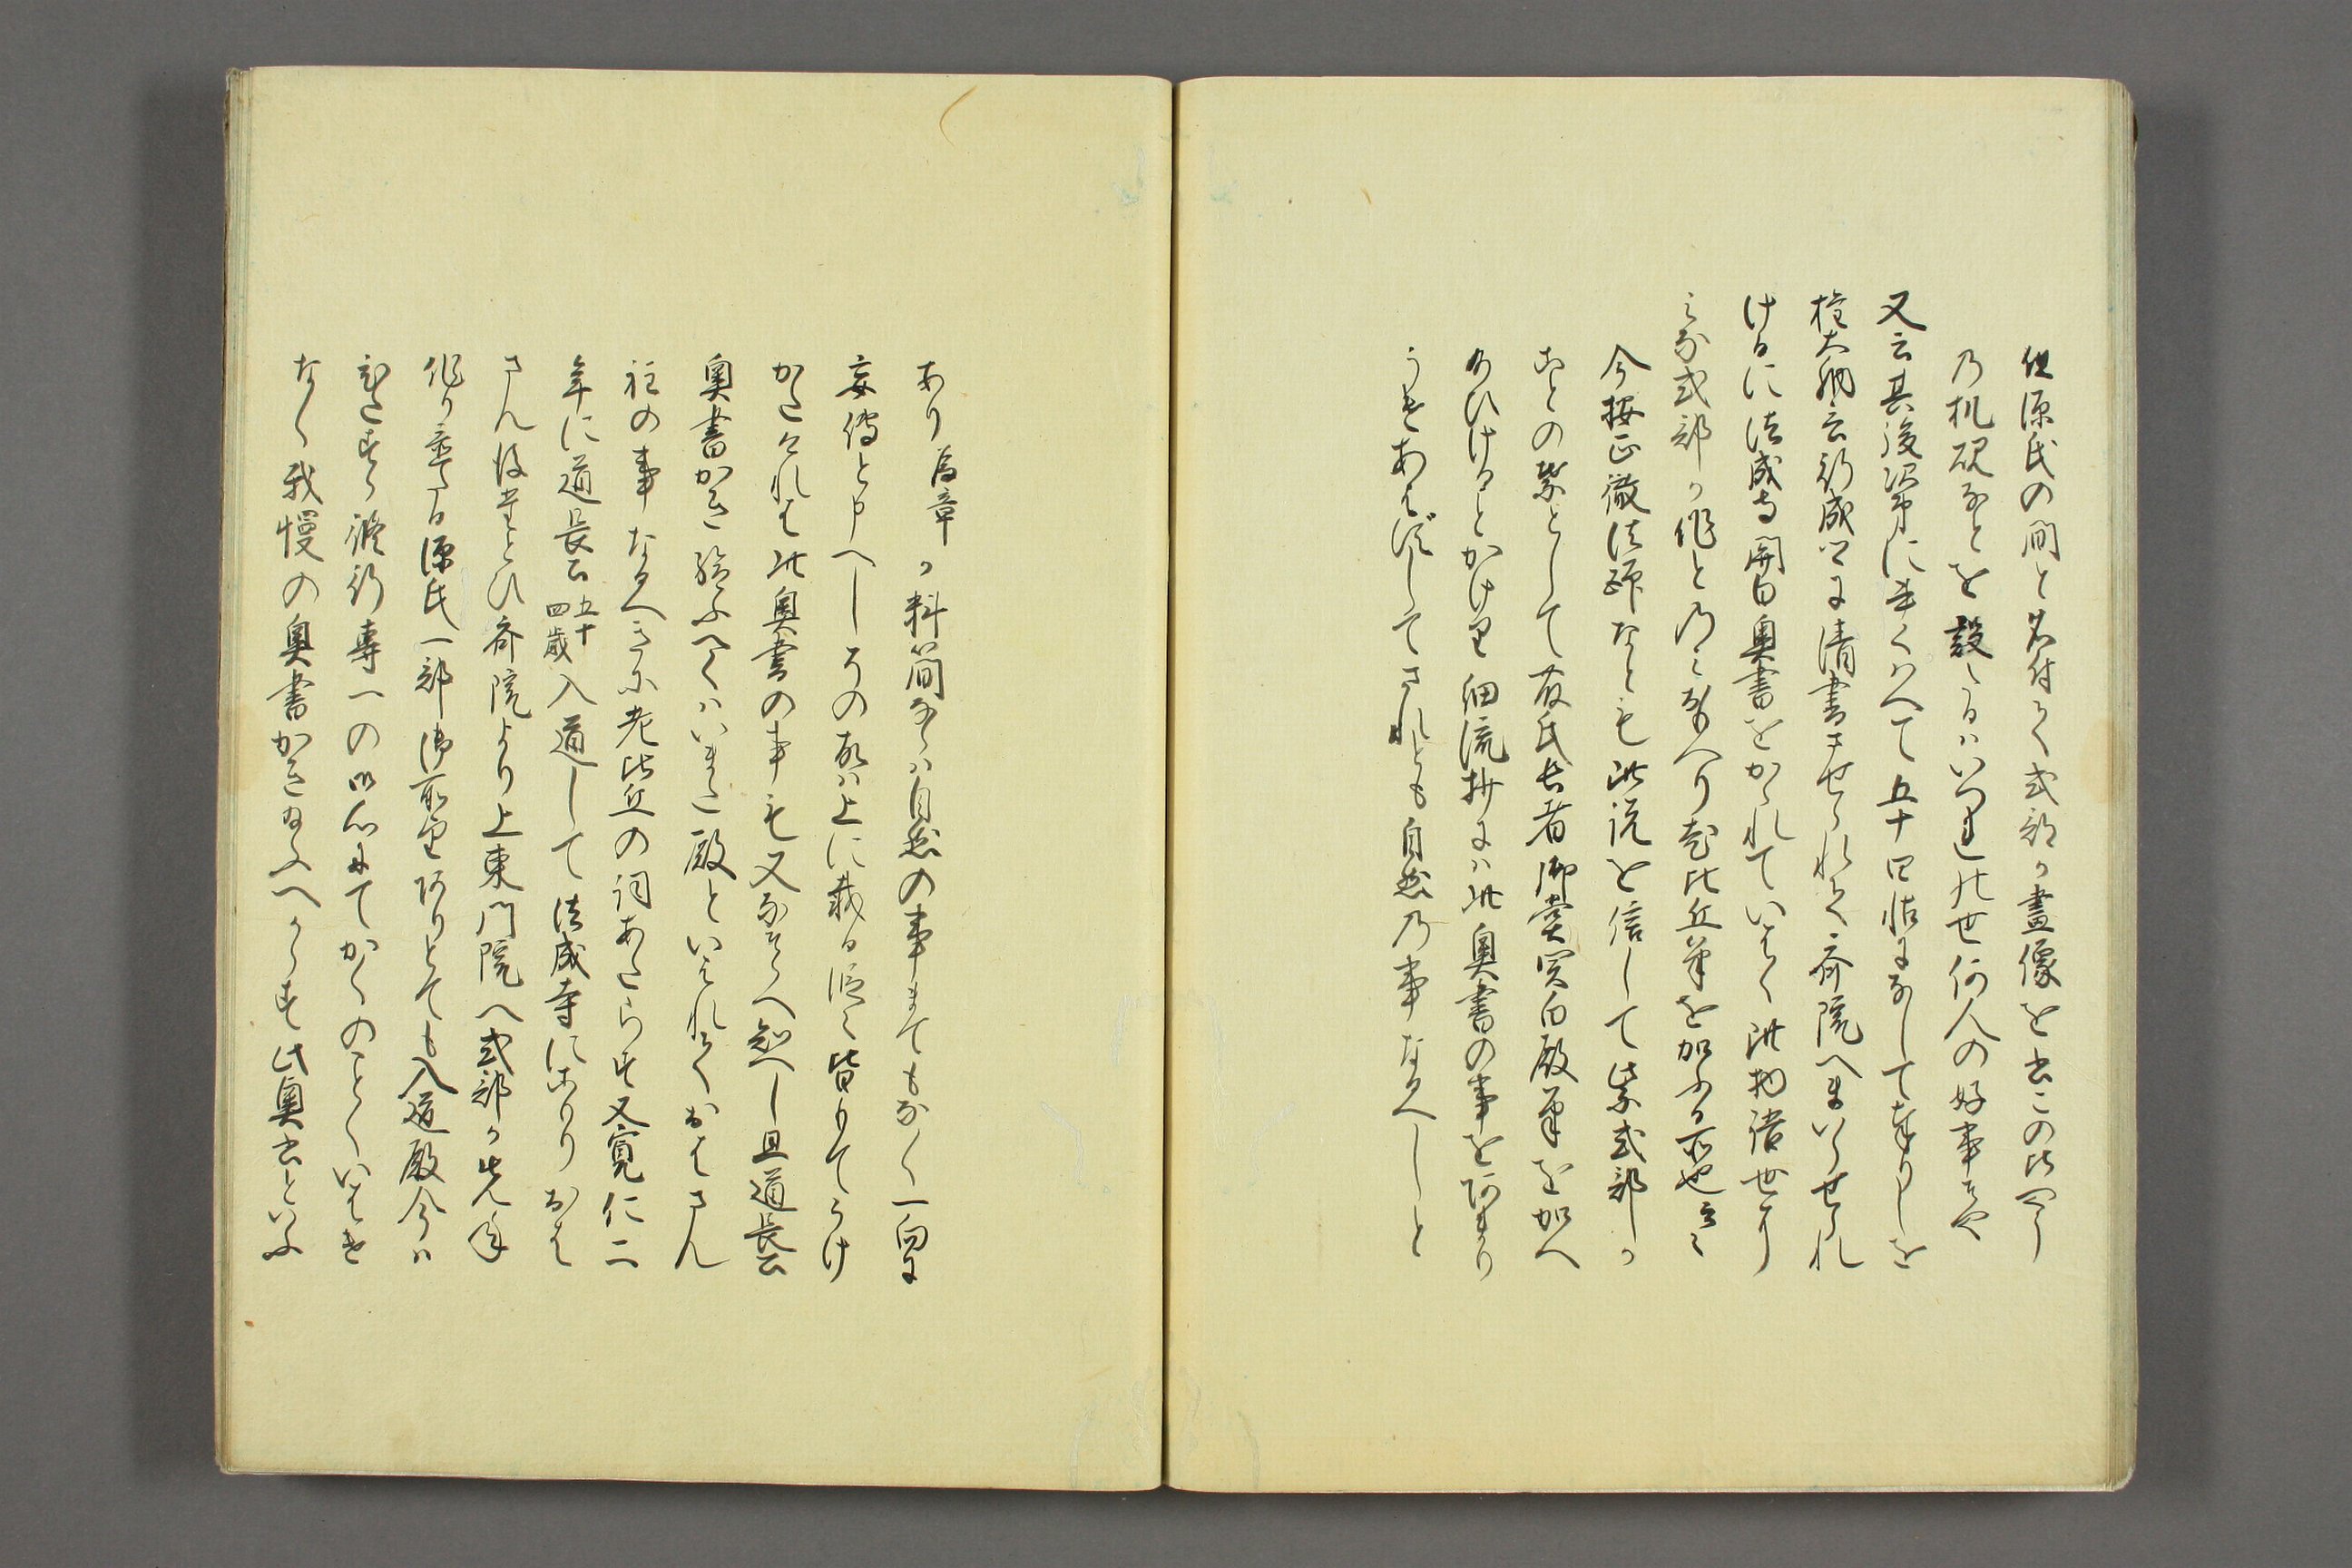 但源氏の間と名付て式部か畫像を書この比やう
乃机硯なとを設たるはいつれの世何人の好事そや
又云其後次第に書くはへて五十四帖になして奉りしを
権大納言行成卿に清書させられて斎院へまいらせられ
けるに法成寺関白奥書をかゝれていはく此物語世こそり
みな式部か作とのみ思へり老比丘筆を加ふる所也云々
今按正徹法師なとも此説を信して紫式部か
ことの葉として藤氏長者御堂関白殿筆を加へ
給ひけるとかけり細流抄には此奥書の事をあまり
うきあはすしてされとも自然乃事なるへしと
あり為章か料簡ならは自然の事まてもなく一向に
妄傳と申へしその故は上に載る
かたけれは此奥書の事も又なそらへ知へし且道長公
奥書かき給ふへくはいまた殿といはれておはさん
程の事なるへきに老比丘の詞あたらす又寛仁二
年に道長公五十四歳入道して法成寺にこもりおは
さん後たとひ斎院より上東門院へ式部か先年
作り置たる源氏一部御所望ありとても入道殿今は
ひたすら修行専一の御心にてかくのことくいはき
なく我慢の奥書かき給ふへからす此奥書といふ